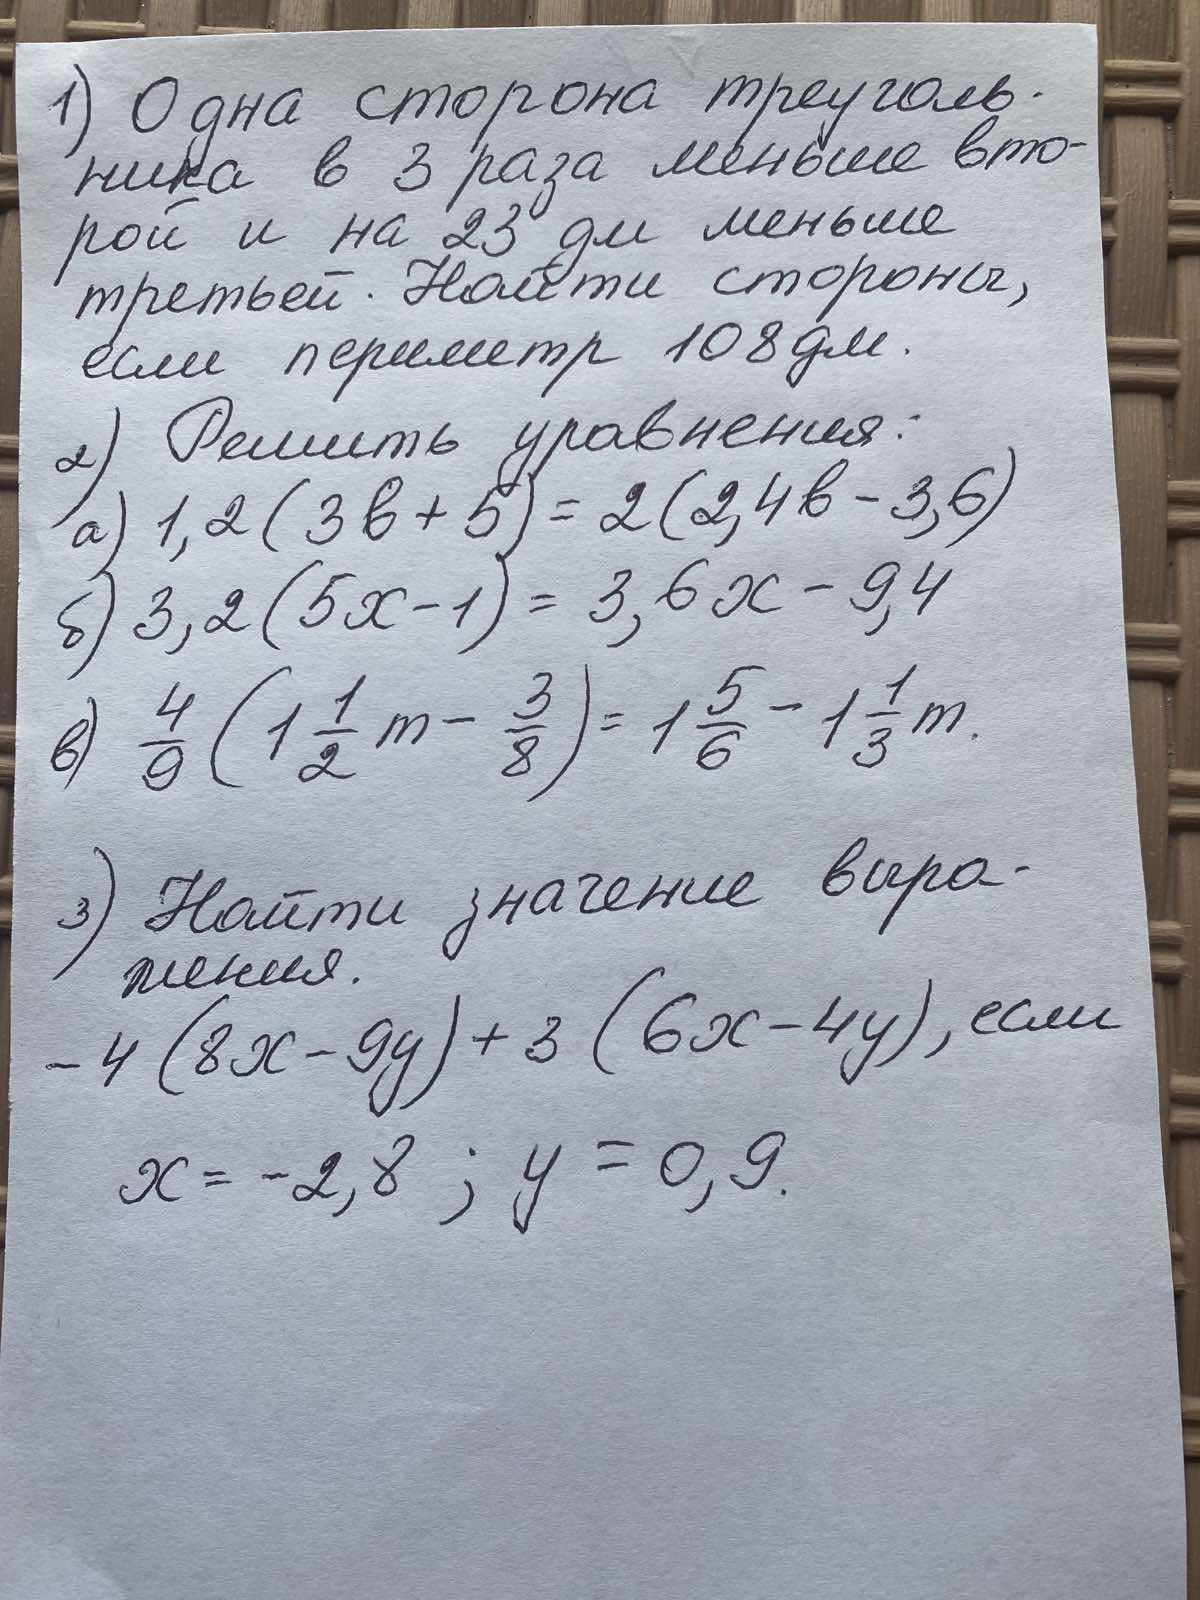 1) Одна сторона треуголь-
ника в 3 раза меньше вто-
рой и на 23 дм меньше
третьей. Найти стороны,
если периметр 108 дм.
2) Решить уравнения:
а) 1,2(3в + 5) = 2(2,4в - 3,6)
б) 3,2(5x - 1) = 3,6x - 9,4
в) 4/9 (1 1/2 m - 3/8) = 1 5/6 - 1 1/3 m.
3) Найти значение выра-
жения.
-4(8x - 9y) + 3(6x - 4y), если
x = -2,8 ; y = 0,9.